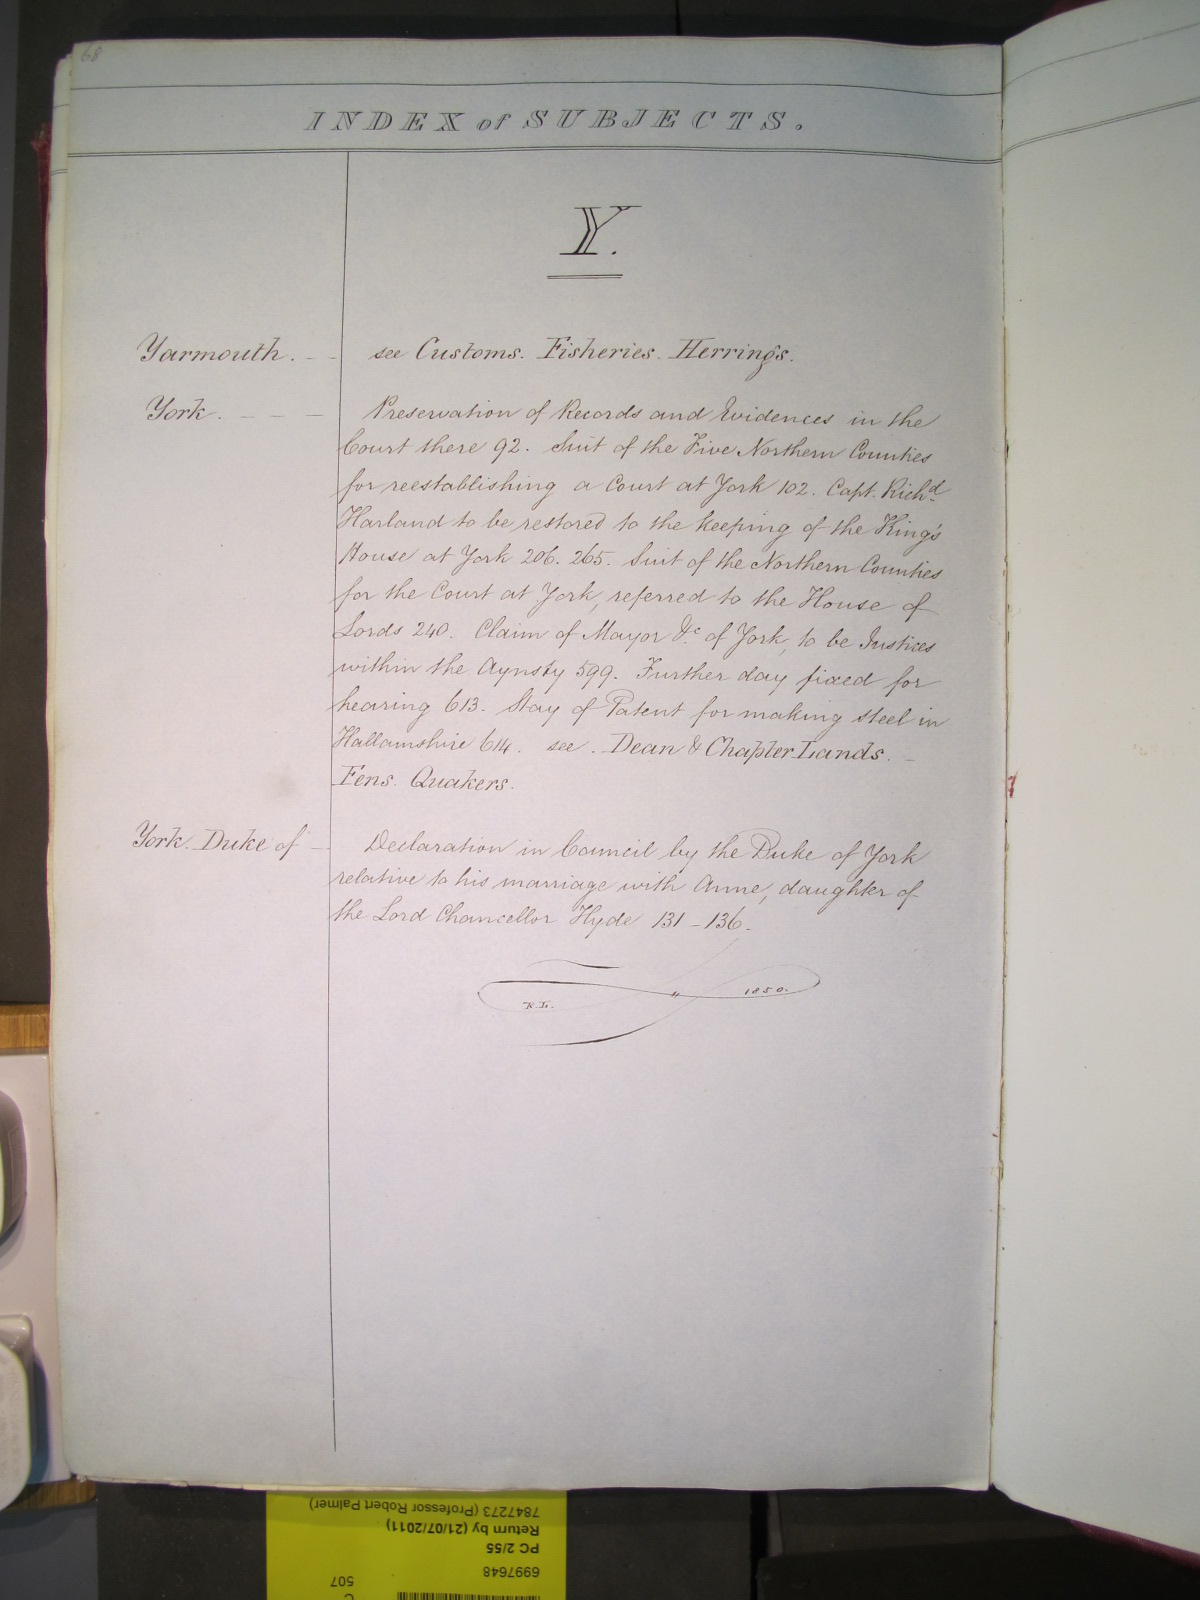 68
INDEX of SUBJECTS.
Y.
Yarmouth. - - see Customs. Fisheries. Herrings.
York. - - - Preservation of Records and Evidences in the
Court there 92. Suit of the Five Northern Counties
for reestablishing a Court at York 102. Capt. Richd.
Harland to be restored to the keeping of the King's
House at York 206. 265. Suit of the Northern Counties
for the Court at York, referred to the House of
Lords 240. Claim of Mayor &c. of York, to be Justices
within the Aynsty 599. Further day fixed for
hearing 613. Stay of Patent for making steel in
Hallamshire 614. see. Dean & Chapter Lands. -
Fens. Quakers.
York. Duke of - Declaration in Council by the Duke of York
relative to his marriage with Anne, daughter of
the Lord Chancellor Hyde 131 - 136.
R.L. 1850.
7847273 (Professor Robert Palmer)
Return by (21/07/2011)
PC 2/55
6997648
507
C